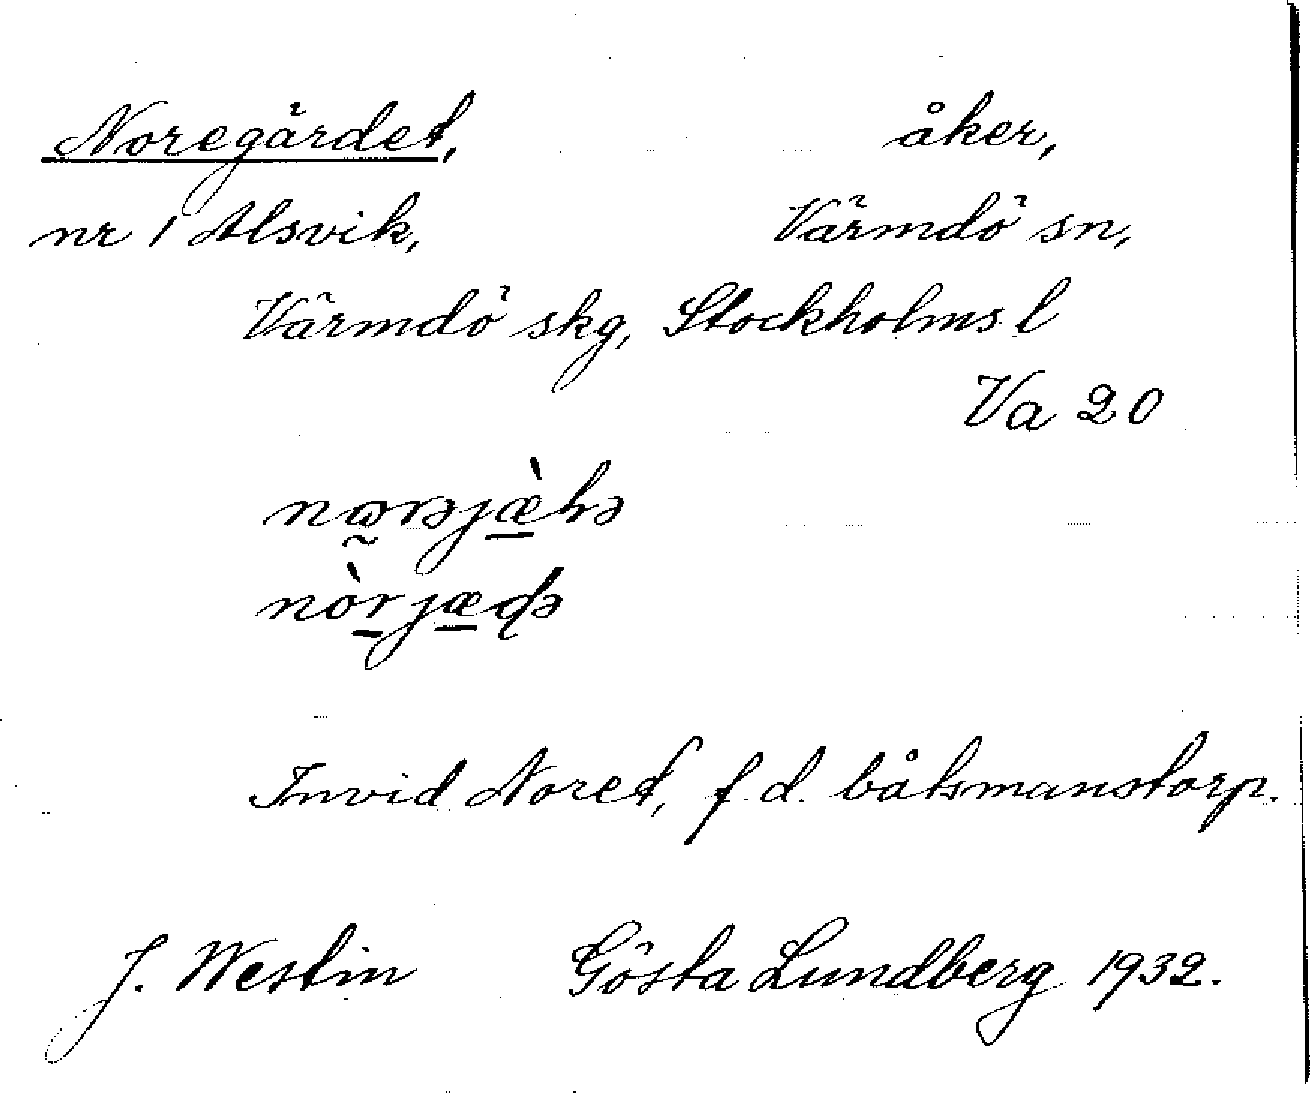 Noregärdet, åker,
nr 1 Alsvik, Värmdö sn,
Värmdö skg, Stockholms l
Va 20
Invid Noret, f. d. båtsmanstorp.
J. Westin Gösta Lundberg 1932.